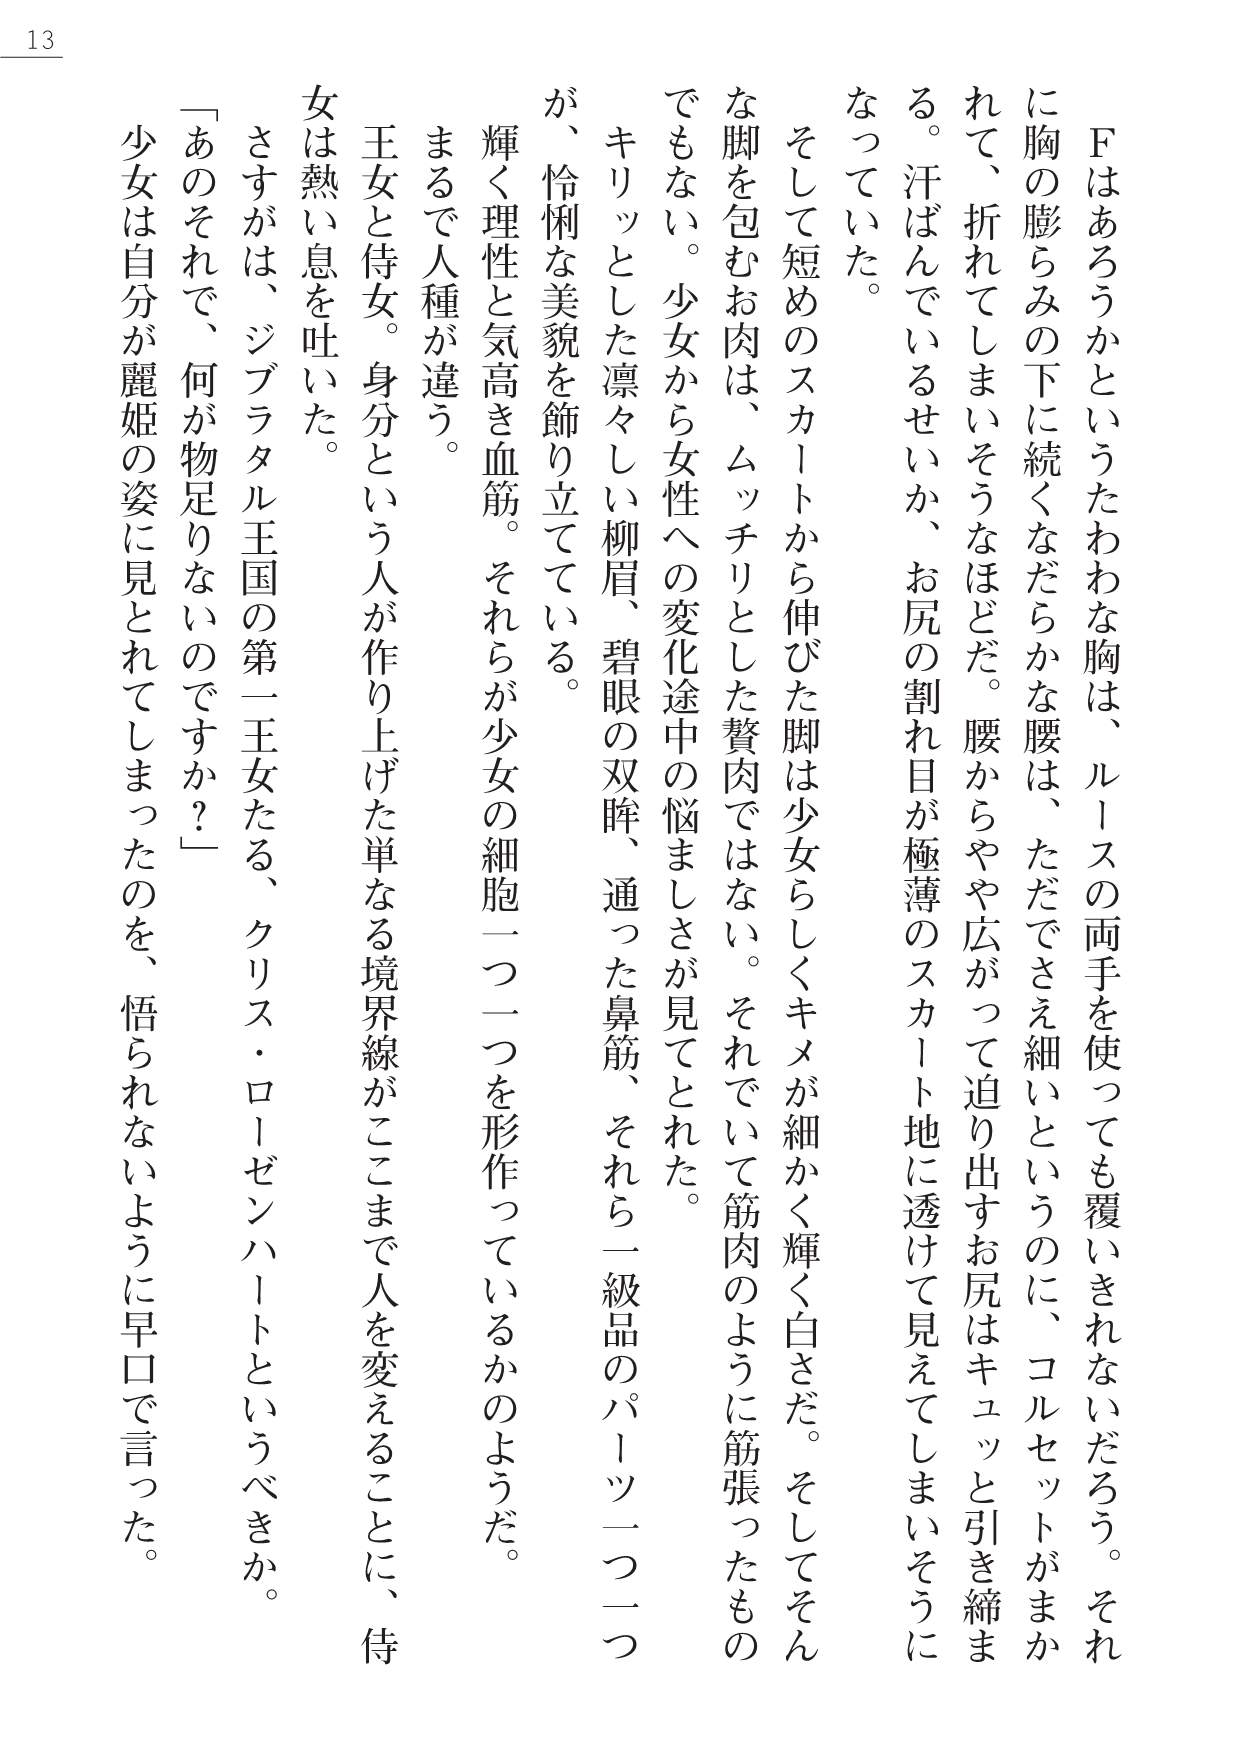 13
Fはあろうかというたわわな胸は、ルースの両手を使っても覆いきれないだろう。それ
に胸の膨らみの下に続くなだらかな腰は、ただでさえ細いというのに、コルセットがまか
れて、折れてしまいそうなほどだ。腰からやや広がって迫り出すお尻はキュッと引き締ま
る。汗ばんでいるせいか、お尻の割れ目が極薄のスカート地に透けて見えてしまいそうに
なっていた。
そして短めのスカートから伸びた脚は少女らしくキメが細かく輝く白さだ。そしてそん
な脚を包むお肉は、ムッチリとした贅肉ではない。それでいて筋肉のように筋張ったもの
でもない。少女から女性への変化途中の悩ましさが見てとれた。
キリッとした凛々しい柳眉、碧眼の双眸、通った鼻筋、それら一級品のパーツ一つ一つ
が、怜悧な美貌を飾り立てている。
輝く理性と気高き血筋。それらが少女の細胞一つ一つを形作っているかのようだ。
まるで人種が違う。
王女と侍女。身分という人が作り上げた単なる境界線がここまで人を変えることに、侍
女は熱い息を吐いた。
さすがは、ジブラタル王国の第一王女たる、クリス・ローゼンハートというべきか。
「あのそれで、何が物足りないのですか？」
少女は自分が麗姫の姿に見とれてしまったのを、悟られないように早口で言った。